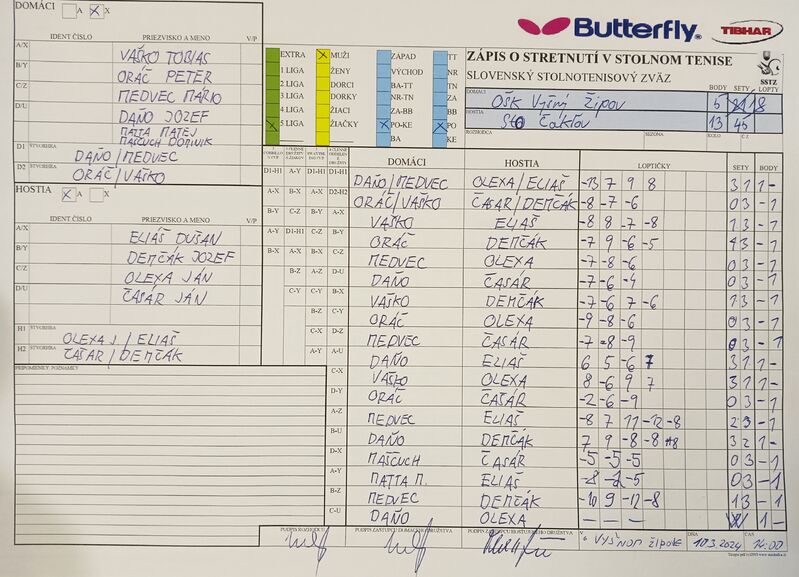 DOMÁCI A X
Butterfly. TIBHAR
IDENT ČÍSLO PRIEZVISKO A MENO V/P
A/X VAŠKO TOBIAS
B/Y ORÁČ PETER
C/Z MEDVEC MÁRIO
D/U DAŇO JOZEF
MATTA MATEJ
MAŠČUCH DOMINIK
D1 ŠTVORHRA DAŇO/MEDVEC
D2 ŠTVORHRA ORÁČ/VAŠKO
HOSTIA A X
IDENT ČÍSLO PRIEZVISKO A MENO V/P
A/X ELIÁŠ DUŠAN
B/Y DEMČÁK JOZEF
C/Z OLEXA JÁN
D/U ČAŠÁR JÁN
H1 ŠTVORHRA OLEXA J./ELIÁŠ
H2 ŠTVORHRA ČAŠÁR/DEMČÁK
PRIPOMIENKY POZNÁMKY
EXTRA MUŽI ZÁPAD TT
1 LIGA ŽENY VÝCHOD NR
2 LIGA DORCI BA-TT TN
3 LIGA DORKY NR-TN ZA
4 LIGA ŽIACI ZA-BB BB
5 LIGA ŽIAČKY PO-KE PO
BA KE
ZÁPIS O STRETNUTÍ V STOLNOM TENISE
SLOVENSKÝ STOLNOTENISOVÝ ZVÄZ
SSTZ
BODY SETY LOPTY
DOMÁCI OŠK Vyšný Žipov 5
HOSTIA Čakľov 13 45
ROZHODCA SEZÓNA KOLO
DOMÁCI HOSTIA LOPTIČKY SETY BODY
D1-H1 A-X D1-H1 D1-H1 DAŇO/MEDVEC OLEXA/ELIÁŠ -13 7 9 8 3 1 1 -
B-Y A-X D2-H2 ORÁČ/VAŠKO ČAŠÁR/DEMČÁK -8 -7 -6 0 3 - 1
B-Y C-Z B-Y A-X VAŠKO ELIÁŠ -8 8 -7 -8 1 3 - 1
A-Y D1-H1 C-Z B-Y ORÁČ DEMČÁK -7 9 -6 -5 1 3 - 1
B-X A-X A-Y C-Z MEDVEC OLEXA -7 -8 -6 0 3 - 1
B-Z A-Z D-U DAŇO ČAŠÁR -7 -6 -4 0 3 - 1
C-Y C-Y B-X VAŠKO DEMČÁK -7 -6 7 -6 1 3 - 1
B-Z C-Y ORÁČ OLEXA -9 -8 -6 0 3 - 1
C-X D-Z MEDVEC ČAŠÁR -7 -8 -9 0 3 - 1
A-Y A-U DAŇO ELIÁŠ 6 5 -6 7 3 1 1 -
C-X VAŠKO OLEXA 8 -6 9 7 3 1 1 -
D-Y ORÁČ ČAŠÁR -2 -6 -9 0 3 - 1
A-Z MEDVEC ELIÁŠ -8 7 11 -12 -8 2 3 - 1
B-U DAŇO DEMČÁK 7 9 -8 -8 8 3 2 1 -
D-X MAŠČUCH ČAŠÁR -5 -5 -5 0 3 - 1
A-Y MATTA M. ELIÁŠ -8 -2 -5 0 3 - 1
B-Z MEDVEC DEMČÁK -10 9 -12 -8 1 3 - 1
C-U DAŇO OLEXA - - - 1 -
PODPIS ROZHODCU PODPIS ZÁSTUPCU DOMÁCEHO DRUŽSTVA PODPIS ZÁSTUPCU HOSŤUJÚCEHO DRUŽSTVA V VYŠNOM ŽIPOVE DŇA 10.3.2024 ČAS 14:00